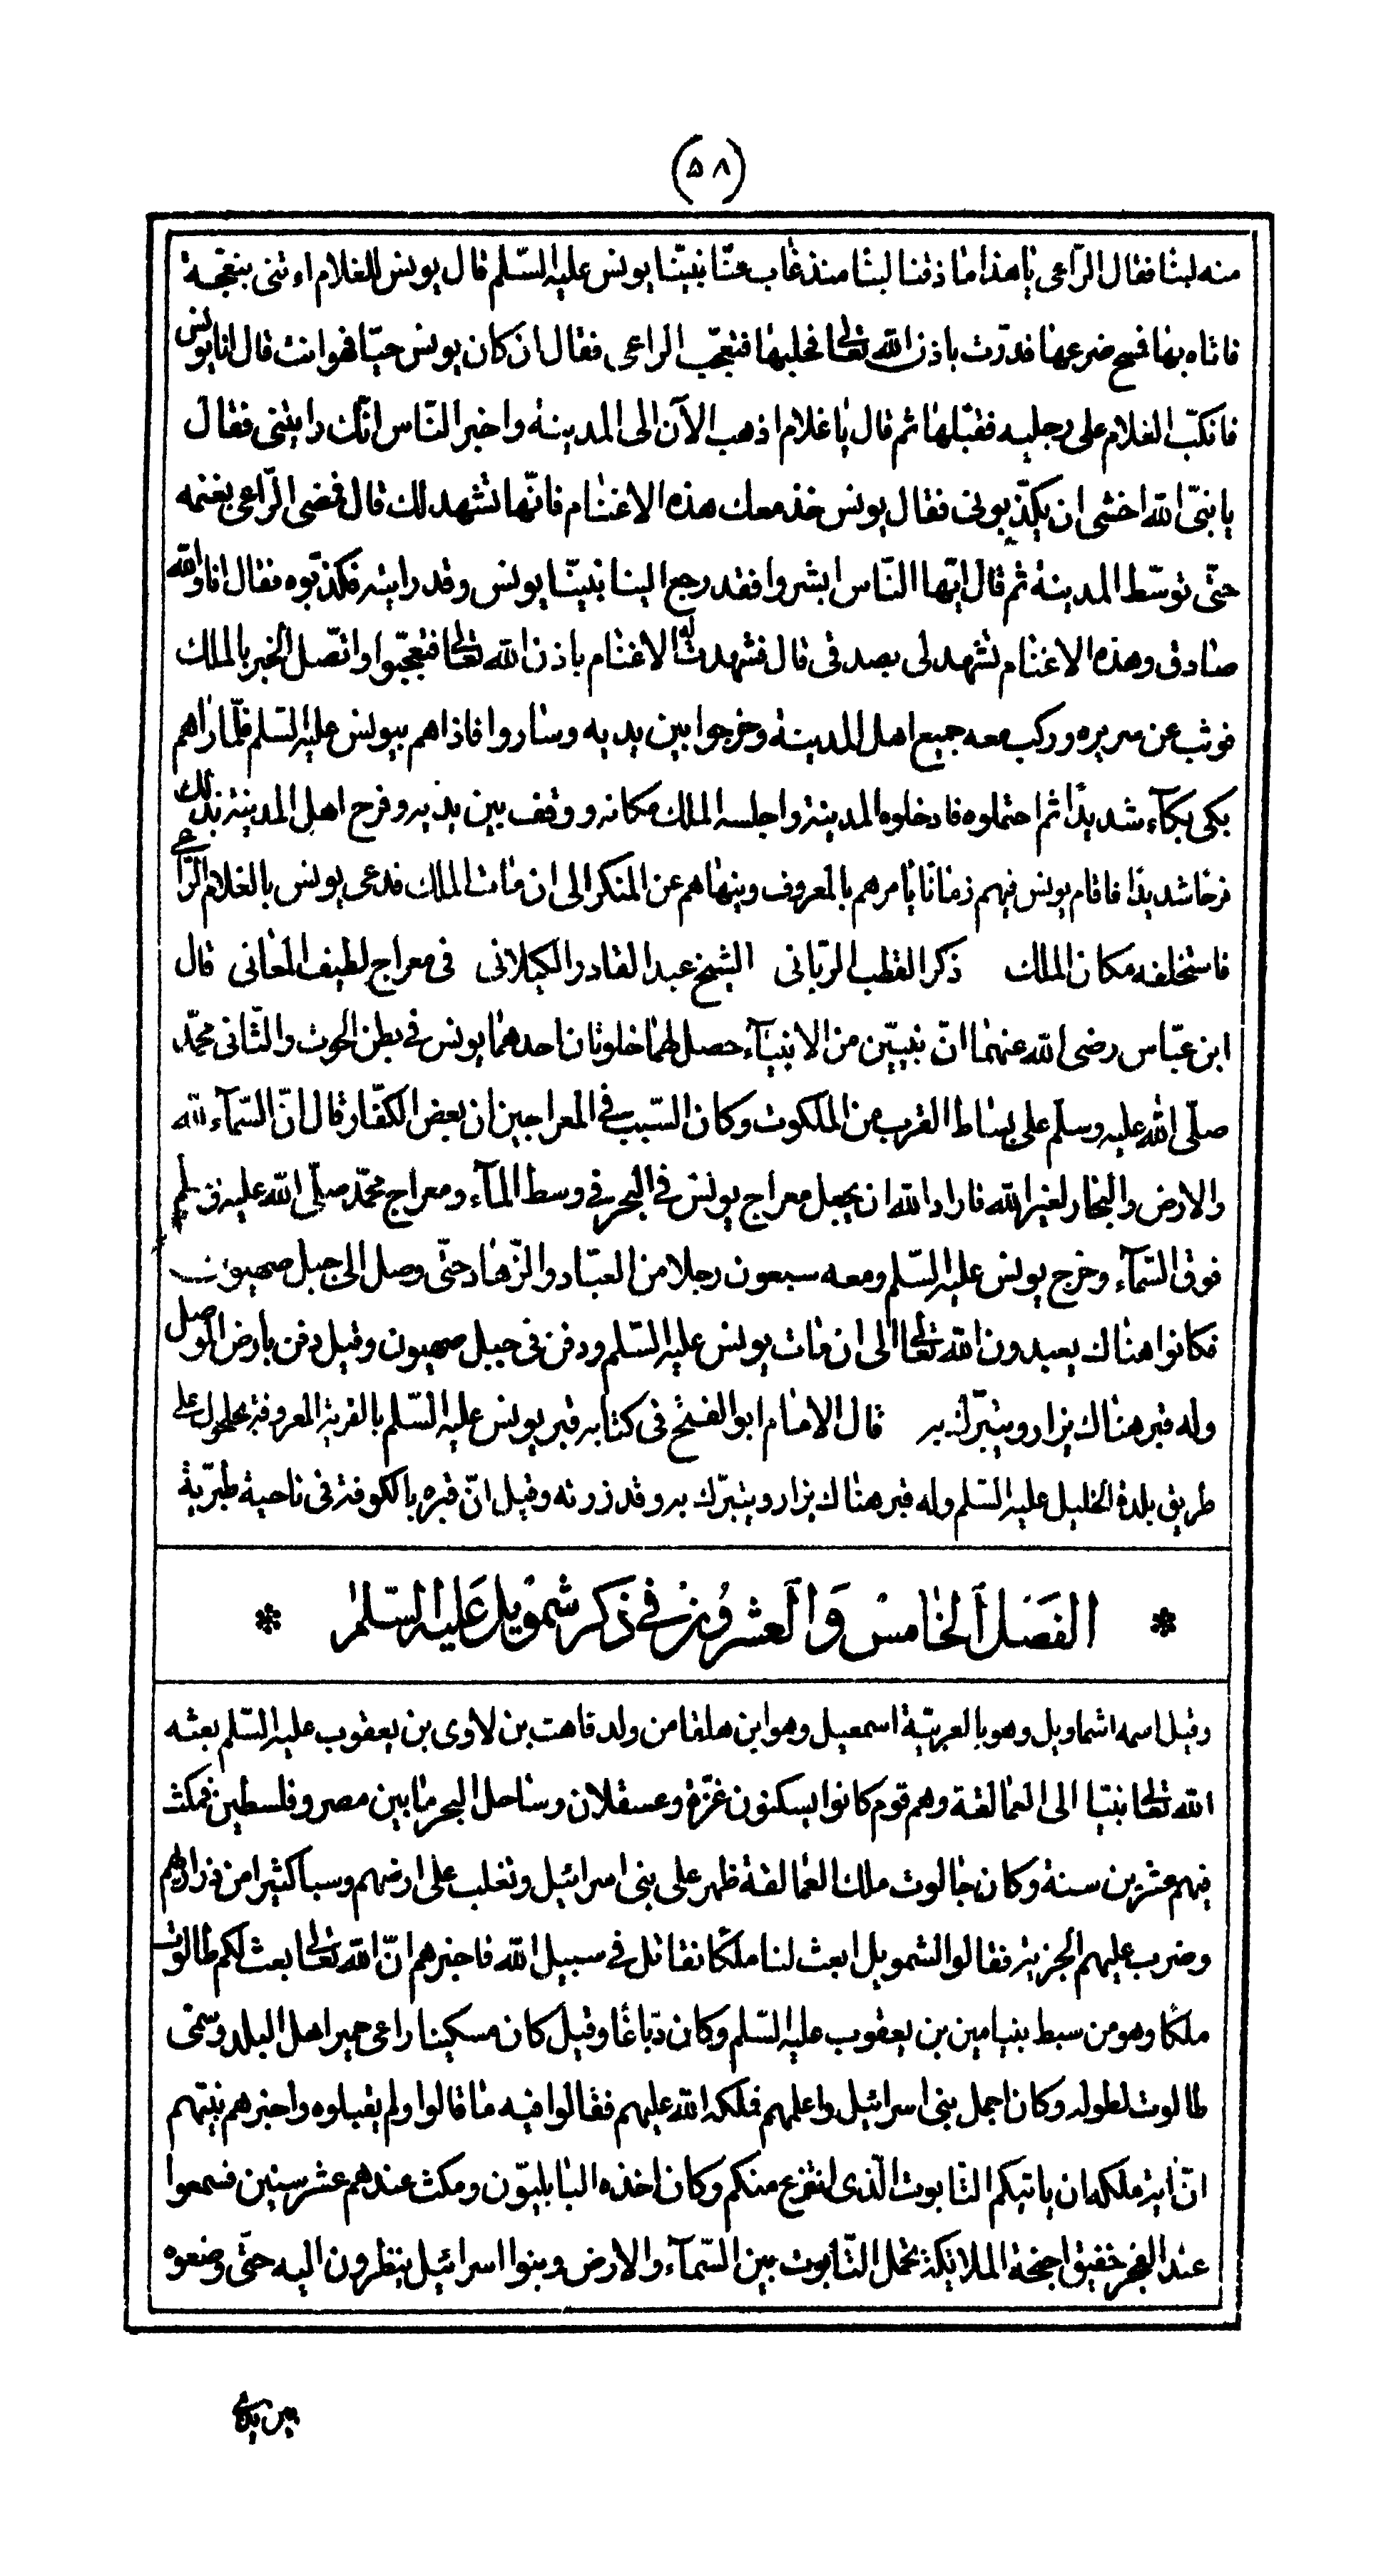 (٥٨)
منه لبنا فقال الرّاعى يا هذا ما ذقنا لبنا منذ غاب عنّا نبيّنا يونس عليه السّلم قال يونس للغلام اءتنى بنعجة
فاتاه بها فمسح ضرعها فدرّت باذن الله تعالى فحلبها فتعجّب الراعى فقال ان كان يونس حيّا فهو انت قال انا يونس
فانكبّ الغلام على رجليه فقبّلها ثم قال يا غلام اذهب الآن الى المدينة واخبر النّاس انّك رايتنى فقال
يا نبىّ الله اخشى ان يكذّبونى فقال يونس خذ معك هذه الاغنام فانّها تشهد لك قال فمضى الرّاعى بغنمه
حتّى توسّط المدينة ثم قال ايّها النّاس ابشروا فقد رجع الينا نبيّنا يونس وقد رايته فكذّبوه فقال انا والله
صادق وهذه الاغنام تشهد لى بصدقى قال فشهدت له الاغنام باذن الله تعالى فتعجّبوا واتّصل الخبر بالملك
فوثب عن سريره وركب معه جميع اهل المدينة وخرجوا بين يديه وساروا فاذا هم بيونس عليه السّلم فلمّا راهم
بكى بكآء شديدًا ثم احتملوه فادخلوه المدينة واجلسه الملك مكانه ووقف بين يديه وفرح اهل المدينة بذلك
فرحا شديدًا فاقام يونس فيهم زمانا يامرهم بالمعروف وينهاهم عن المنكر الى ان مات الملك فدعى يونس بالغلام الرّاعى
فاستخلفه مكان الملك ذكر القطب الربّانى الشيخ عبد القادر الكيلانى فى معراج لطيف المعانى قال
ابن عبّاس رضى الله عنهما انّ نبيّين من الانبيآء حصل لهما خلوتان احدهما يونس فى بطن الحوت والثّانى محمّد
صلّى الله عليه وسلّم على بساط القرب من الملكوت وكان السّبب فى المعراجين ان بعض الكفّار قال انّ السّمآء لله
والارض والبحار لغير الله فاراد الله ان يجعل معراج يونس فى البحر فى وسط المآء ومعراج محمّد صلّى الله عليه وسلم
فوق السّمآء وخرج يونس عليه السّلم ومعه سبعون رجلا من العبّاد والزّهاد حتّى وصل الى جبل صهيون
فكانوا هناك يعبدون الله تعالى الى ان مات يونس عليه السّلم ودفن فى جبل صهيون وقيل دفن بارض الموصل
وله قبر هناك يزار ويتبرّك به قال الامام ابو الفتح فى كتابه قبر يونس عليه السّلم بالقرية المعروفة بحلحول على
طريق بلدة الخليل عليه السّلم وله قبر هناك يزار ويتبرّك به وقد زرته وقيل انّ قبره بالكوفة فى ناحية طبريّة
* الفصل الخامس والعشرون فى ذكر شمويل عليه السّلم *
وقيل اسمه اشماويل وهو بالعربيّة اسمعيل وهو ابن هلقا من ولد قاهت بن لاوى بن يعقوب عليه السّلم بعثه
الله تعالى نبيّا الى العمالقة وهم قوم كانوا يسكنون غزّة وعسقلان وساحل البحر ما بين مصر وفلسطين فمكث
فيهم عشرين سنة وكان جالوت ملك العمالقة ظهر على بنى اسرائيل وتغلب على ارضهم وسبا كثيرا من ذراريهم
وضرب عليهم الجزية فقالوا لشمويل ابعث لنا ملكا نقاتل فى سبيل الله فاخبرهم انّ الله تعالى بعث لكم طالوت
ملكا وهو من سبط بنيامين بن يعقوب عليه السّلم وكان دبّاغا وقيل كان مسكينا راعى حمير اهل البلد وسمّى
طالوت لطوله وكان اجمل بنى اسرائيل واعلمهم فملكه الله عليهم فقالوا فيه ما قالوا ولم يقبلوه واخبرهم نبيّهم
انّ آية ملكه ان ياتيكم التّابوت الّذى انتزع منكم وكان اخذه البابليّون ومكث عندهم عشر سنين فسمعوا
عند الفجر خفيق اجنحة الملائكة تحمل التّابوت بين السّمآء والارض وبنوا اسرائيل ينظرون اليه حتّى وضعوه
بين يدى